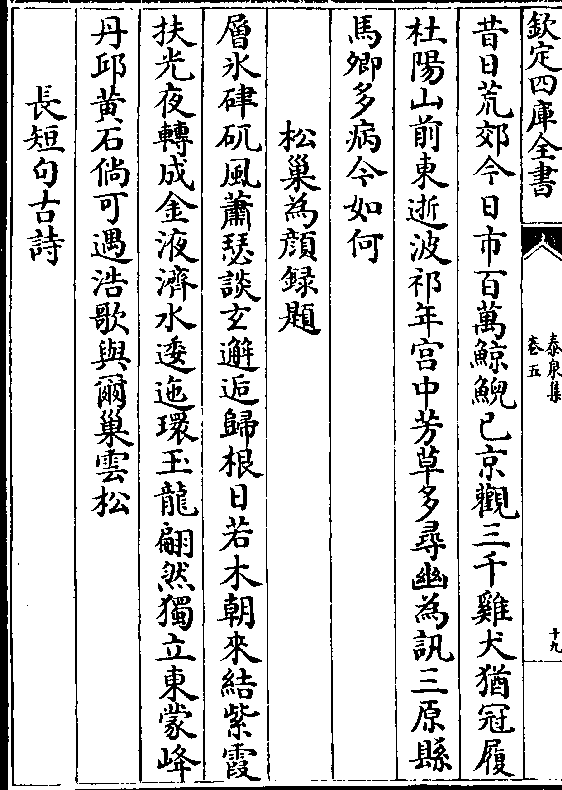 欽定四庫全書
泰泉集
卷五
十九
昔日荒郊今日市百萬鯨鯢已京觀三千雞犬猶冠履
杜陽山前東逝波祁年宮中芳草多尋幽為訊三原縣
馬卿多病今如何
松巢為顔録題
層氷硉矹風蕭瑟談玄邂逅歸根日若木朝來結紫霞
扶光夜轉成金液濟水逶迤環玉龍翩然獨立東蒙峰
丹邱黄石倘可遇浩歌與爾巢雲松
長短句古詩